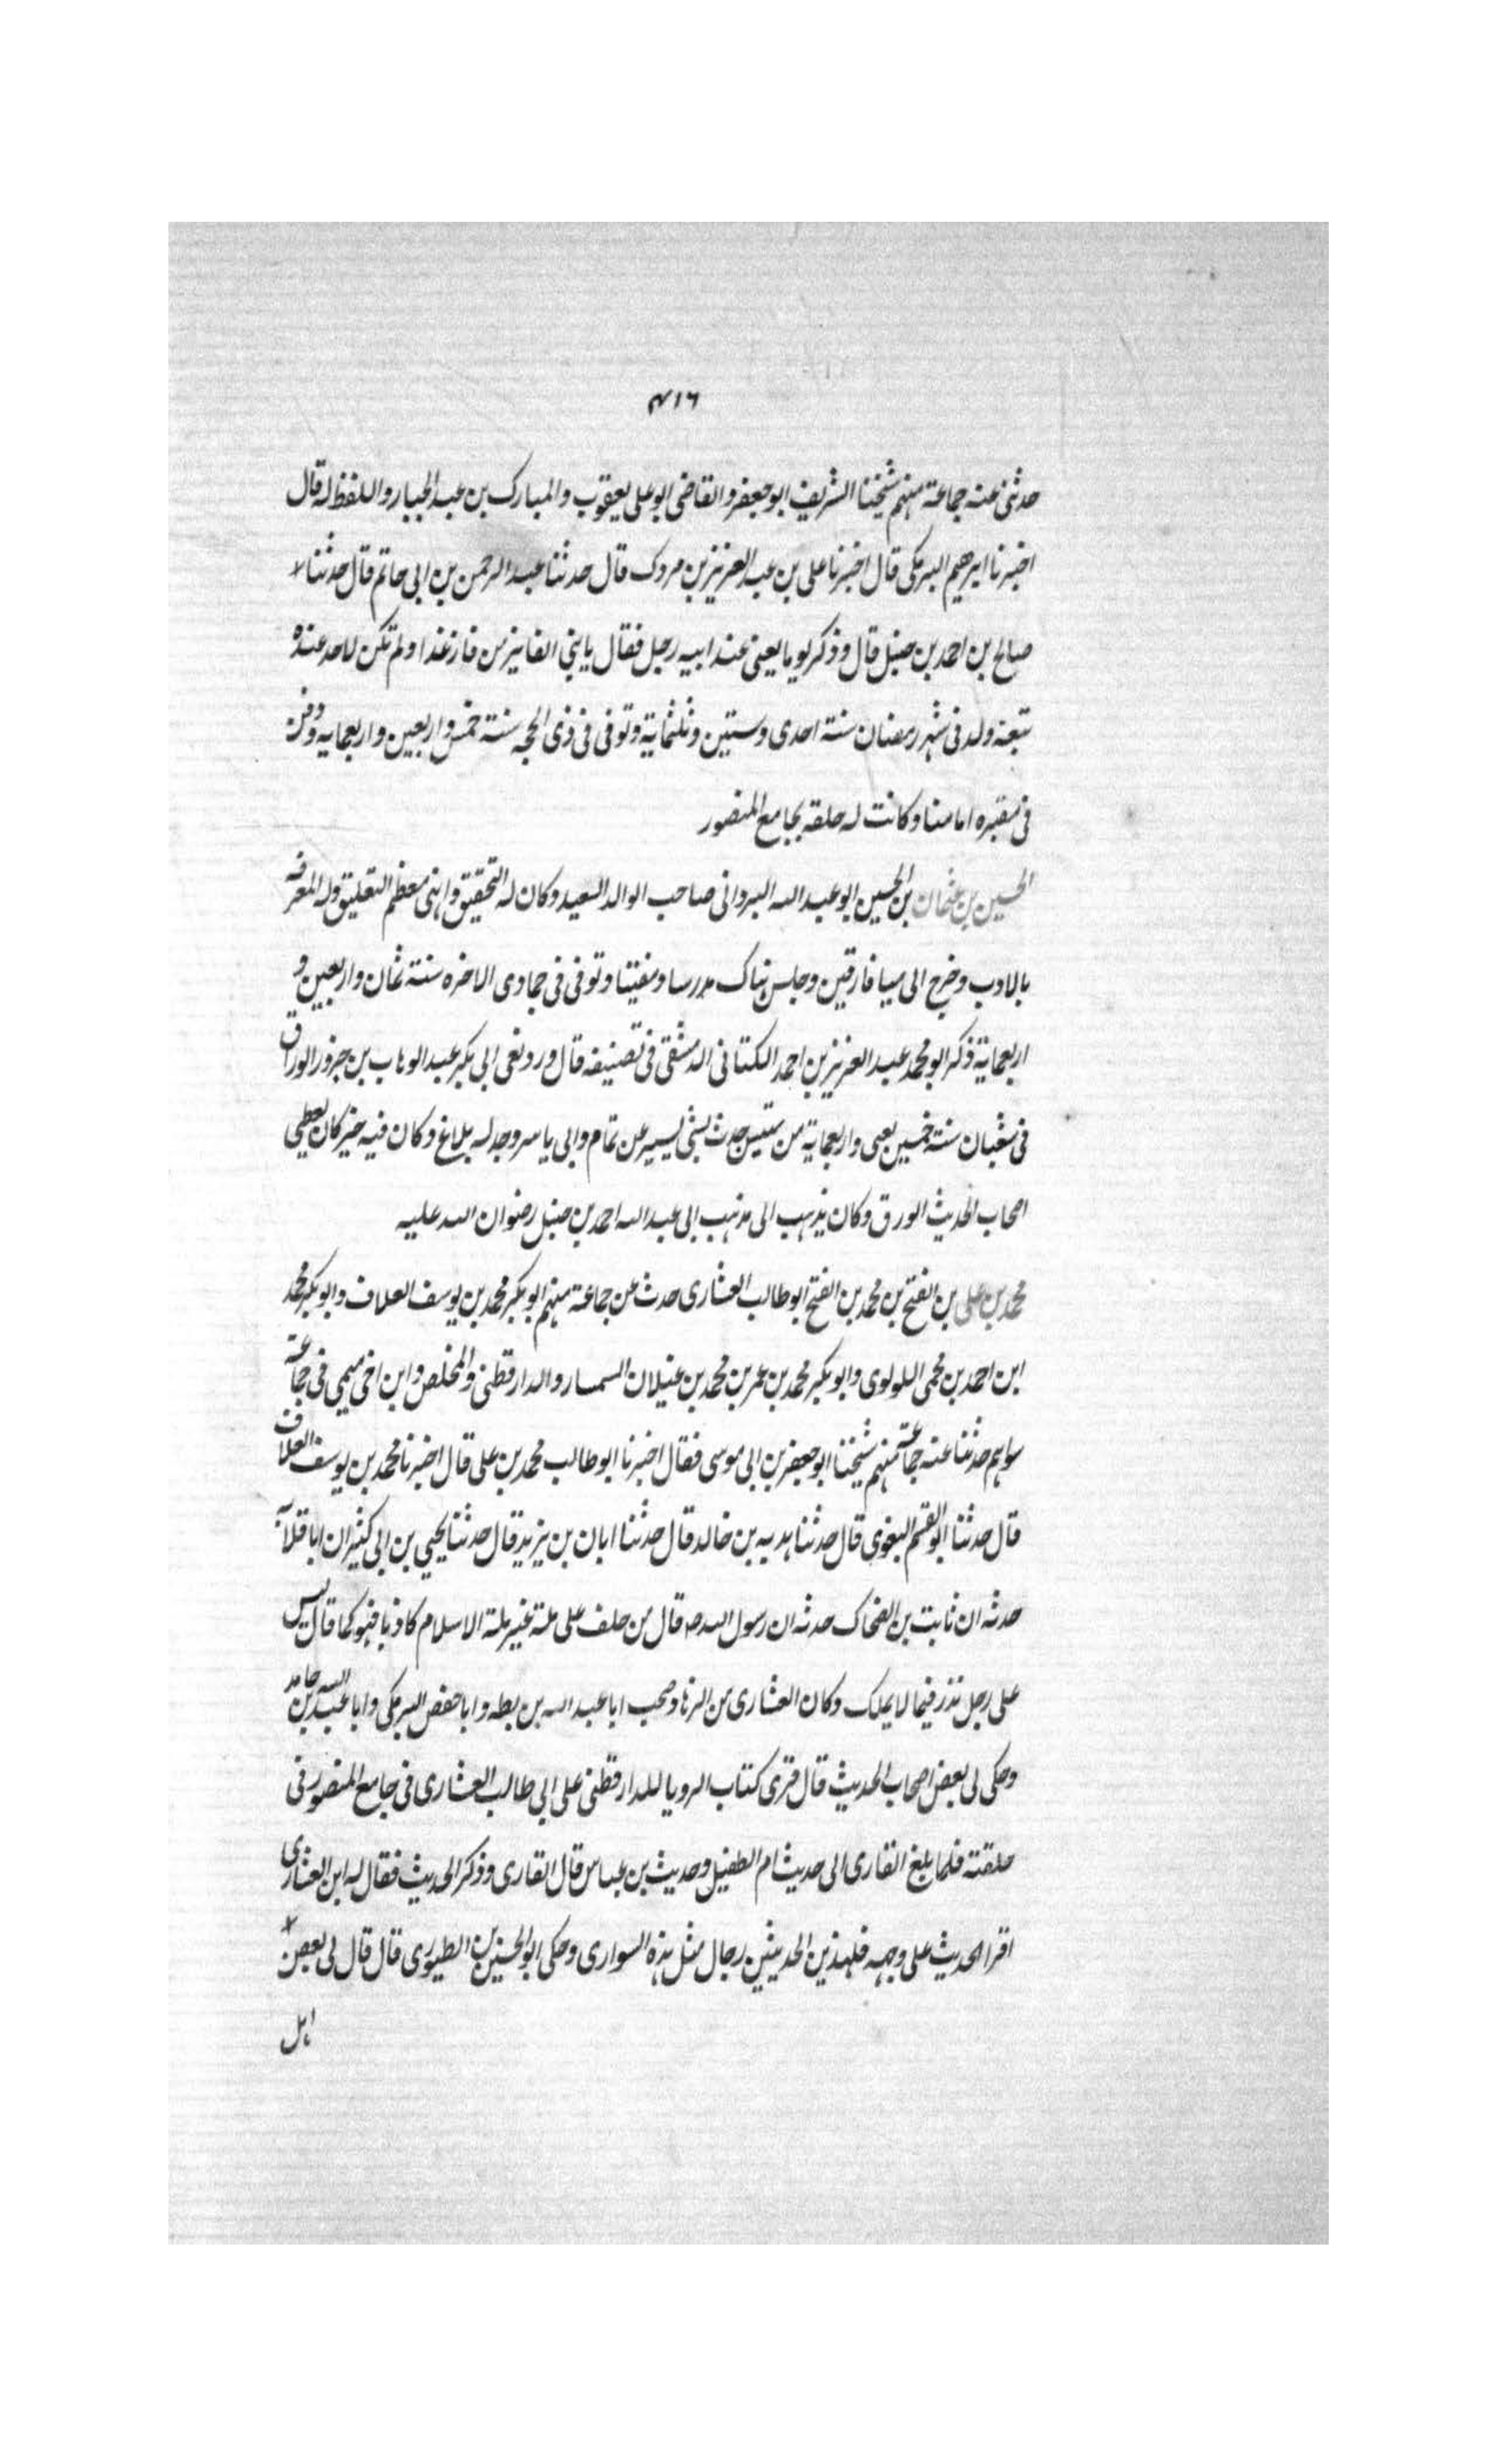 ٤١٦
حدثنى عنه جماعة منهم شيخنا الشريف ابو جعفر والقاضى ابو على يعقوب والمبارك بن عبد الجبار واللفظ له قال
اخبرنا ابرهيم البرمكى قال اخبرنا على بن عبد العزيز بن مردك قال حدثنا عبد الرحمن بن ابى حاتم قال حدثنا
صالح بن احمد بن حنبل قال وذكر يوما يعنى عند ابيه رجل فقال يا بنى الفايز من فاز غدا ولم تكن لاحد عنده
تبعة ولد فى شهر رمضان سنة احدى وستين وثلثماية وتوفى فى ذى الحجه سنة خمس واربعين واربعمايه ودفن
فى مقبره امامنا وكانت له حلقه بجامع المنصور
الحسين بن عثمان بن الحسين ابو عبد الله البردانى صاحب الوالد السعيد وكان له التحقيق وانهى معظم التعليق وله المعرفه
بالادب وخرج الى ميا فارقين وجلس هناك مدرسا ومفتيا وتوفى فى جمادى الاخره سنة ثمان واربعين و
اربعماية ذكر ابو محمد عبد العزيز بن احمد الكتانى الدمشقى فى تصنيفه قال ورد نعى ابى بكر عبد الوهاب بن حزور الوراق
فى شعبان سنة خمسين يعنى واربعماية من حدث بشى يسير عن تمام وابى ياسر وجد له بلاغ وكان فيه خير كان يعطى
اصحاب الحديث الورق وكان يذهب الى مذهب ابى عبد الله احمد بن حنبل رضوان الله عليه
محمد بن على بن الفتح بن محمد بن الفتح ابو طالب العشارى حدث عن جماعة منهم ابو بكر محمد بن يوسف العلاف وابو بكر محمد
ابن احمد بن محمى اللولوى وابو بكر محمد بن عمر بن محمد بن عيلان السمسار والدارقطنى والمخلص وابن اخى ميمى فى جماعة
سواهم حدثنا عنه جماعة منهم شيخنا ابو جعفر بن ابى موسى فقال اخبرنا ابو طالب محمد بن على قال اخبرنا محمد بن يوسف العلاف
قال حدثنا ابو القسم البغوى قال حدثنا هدبه بن خالد قال حدثنا ابان بن يزيد قال حدثنا يحيى بن ابى كثير ان ابا قلابة
حدثه ان ثابت بن الضحاك حدثه ان رسول الله صه قال من حلف على ملة غير ملة الاسلام كاذبا فهو كما قال ليس
على رجل نذر فيما لا يملك وكان العشارى من الزهاد صحب ابا عبد الله بن بطه وابا حفص البرمكى وابا عبد الله بن حامد
وحكى لى بعض اصحاب الحديث قال قرى كتاب الرويا للدارقطنى على ابى طالب العشارى فى جامع المنصور فى
حلقته فلما بلغ القارى الى حديث ام الطفيل وحديث بن عباس قال القارى وذكر الحديث فقال له ابن العشارى
اقرا الحديث على وجهه فلهذين الحديثين رجال مثل هذه السوارى وحكى ابو الحسين بن الطيورى قال قال لى بعض
اهل